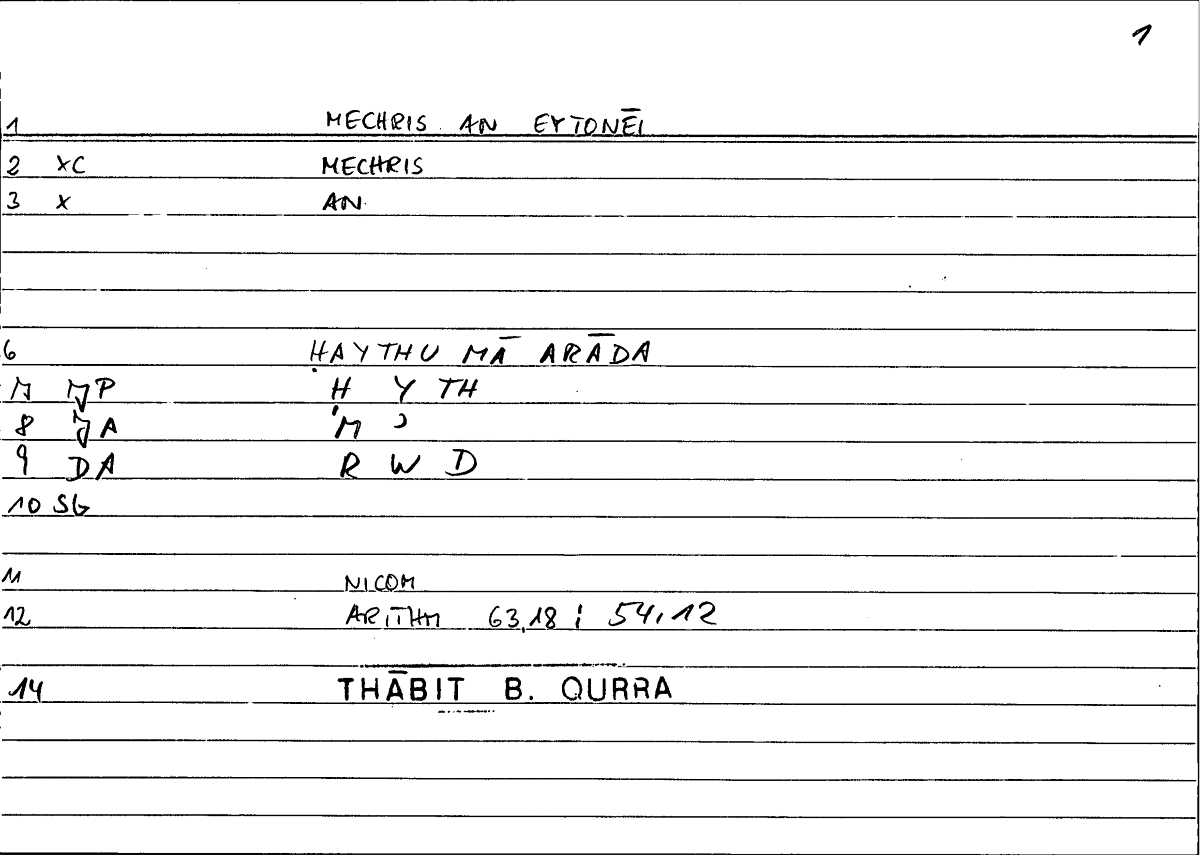 1
1 MECHRIS AN EYTONĒI
2 XC MECHRIS
3 X AN
6 ḤAYTHU MĀ ARĀDA
7 JP Ḥ Y TH
8 JA M ʾ
9 DA R W D
10 SG
11 NICOM
12 ARITHM 63,18 ; 54,12
14 THĀBIT B. QURRA